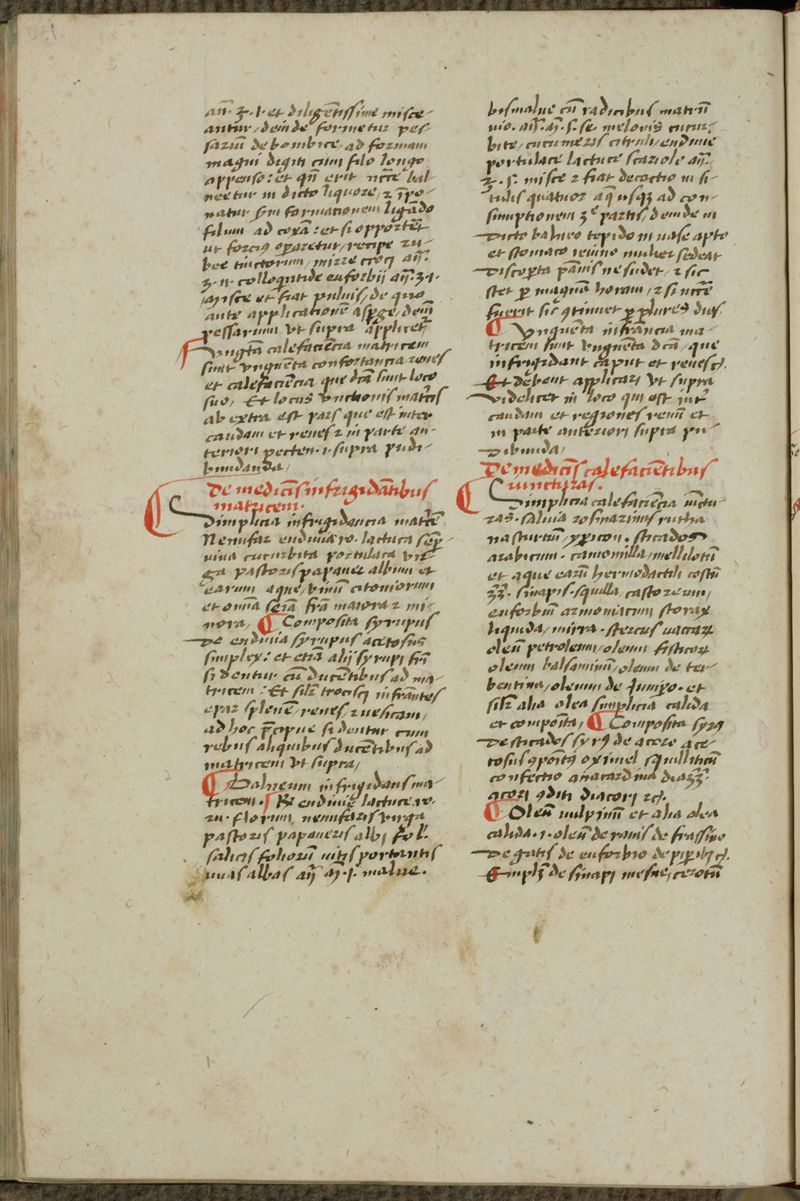 añ. ʒ. i. et diligētissime misce-
antur / deinde formetur pes-
sariū de bombice / ad formam
magni digiti cum filo longo
appenso: et qñ erit ncc̄e bal-
neetur in dicto liquore, ⁊ īpo-
natur
filum ad coxā: et si opporteꝉ
ut forciꝯ operetur / recipe ru-
bee tinctorum / mirre croci añ.
ʒ. ii. colloquntide euforbij añ. ʒ. i.
misce et fiat puluis / de quo
ante applicationē aspge, dein̄
pessarium vt supra applicet̄
Vngēta calefaciēcia matricem
sunt vnguēta confortancia renes
et calefaciēcia que dc̄a sunt loco
suo, Et locus vnctionis matricis
ab extra est pars que est inter
caudam et renes ⁊ in parte an-
teriori pecten .i. supra pudi-
bundanda /
De medicīs infrigidātibus
matricem.
Simplicia infrigidancia matricē
Nenufar endiuia ro. lactuca semp
uiua cucurbita portulaca vir-
ga pastoris papauer album et
earum aque, vinū citoniorum
et omīa sēīa fr̄a maiora ⁊ mi-
nora, ¶ Composita syrupus
de endiuia syrupus acetosus
simplex: et etiā alij syrupi fr̄i
si dentur cū ducētibus ad ma-
tricem: Et silr̄ trocisci infrāntes
epar splenē, renes, ⁊ uesicam,
ad hoc p̄cipue si dentur cum
rebus aliquibus ducētibus ad
matricem vt supra,
¶ Balneum infrigidans ma-
tricem. ℞ endiuie lactuce ro.
ru. florum nenufaris virga
pastoris papaueris albi fol.
salicis foliorū uitis portantis
uuas albas añ ʒ. i. malue.
bismalue cū radicibus matrū
uio. añ.
bite, cucumeris citruli, endiuie
portulace lactuce scariole añ.
ʒ. s. misce ⁊ fiat decoctio in si-
tulis quatuor aq̄ usqꝫ ad con-
sumptionem ʒᵉ partis, deinde in
dicto balneo tepido in uase apto
et stomaco ieiuno mulier sedeat
discopta pānis ne sudet, ⁊ sic
stet p magnā horam, ⁊ si ncc̄e
fuerit sic ꝯtinuet p plures dies
¶ Vnguēta infrāncia ma-
tricem sunt vnguēta dc̄a, que
infrigidant caput et renes
Et debent applicari vt supra
videlicet in loco qui est int̄
caudam et regiones renū et
in parte anteriori supra pu-
dibunda,
De medicīs calefaciētibus
iuncturas.
¶ Simplicia calefaciēcia iūctu-
ras. saluia rosmarinus rutha
nasturciū, ypicon. sticados
arabicum. camomilla, mellilotū
et aque earū hermodactili costū
ʒʒ. sinapis. squilla castoreum,
euforbiū armoniacum storax
liquida, mirra. stercus uaccaꝝ
oleū petroleum, oleum fisticoꝝ
oleum balsaminū, oleum de ter-
bentina, oleum de iunipo. et
silr̄ alia olea simplicia calida
et composita, ¶ Composita syrꝯ
de sticados syrꝯ de acoro ace-
tosus ꝯpoītꝯ oximel squilliticū
confectio anacardina diaʒʒ.
acori ꝯditi diacori
¶ Oleū uulpinū et alia olea
calida .i. oleū de ranis de frassino
de gatis de euforbio de pipibꝯ
Emplr̄ de sinapi mesue, cerotū